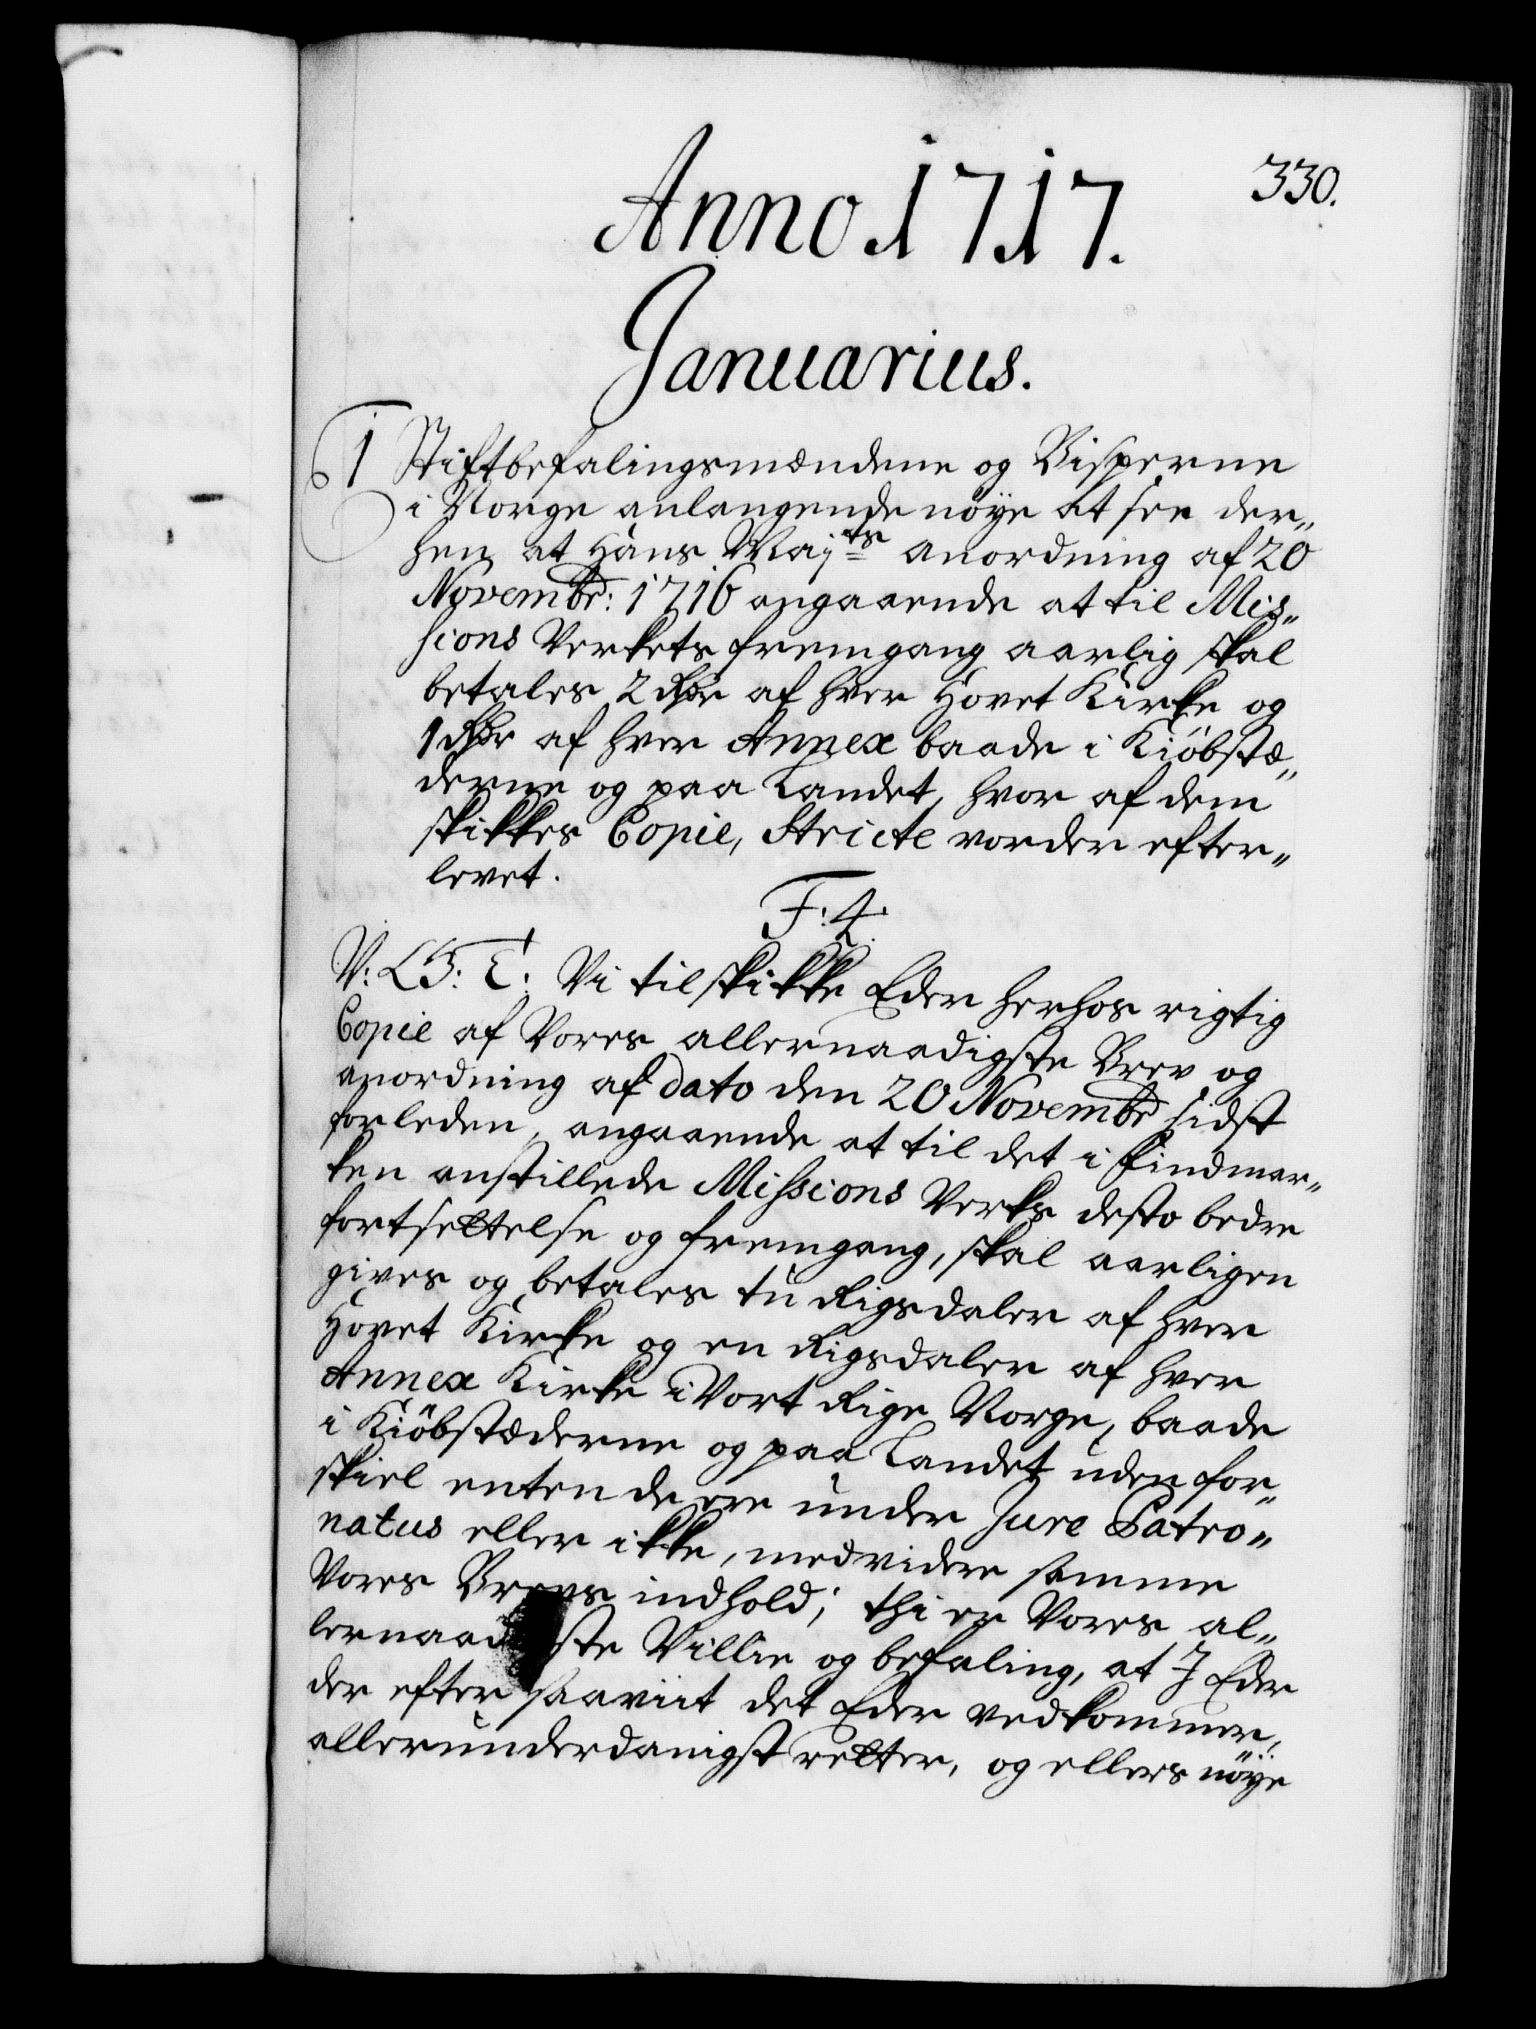 330.
Anno 1717.
Januarius.
1 Stiftbefalingsmændene og Bisperne
i Norge anlangende nöye at see der„
hen at Hans Maj:ts anordning af 20
Novembr: 1716 angaaende at til Mis„
sions Verkets fremgang aarlig skal
betales 2 Rdr af hver Hovet Kirke og
1 Rdr af hver Annex baade i Kiöbstæ„
derne og paa Landet, hvor af dem
skikkes Copie, Stricte vorder efter„
levet.
F: 4.
V: G: T: Vi tilskikke Eder herhos rigtig
Copie af Vores allernaadigste Brev og
anordning af dato den 20 Novembr sidst
forleden, angaaende at til det i Findmar„
ken anstillede Missions Verks desto bedre
fortsettelse og fremgang, skal aarligen
gives og betales tu Rigsdaler af hver
Hovet Kirke og en Rigsdaler af hver
Annex Kirke i Vort Rige Norge, baade
i Kiöbstæderne og paa Landet uden for„
skiel enten de ere under Jure Patro„
natus eller ikke, medvidere samme
Vores Brevs indhold; thi er Vores al„
lernaadigste Villie og befaling, at I Eder
der efter saavit det Eder vedkommer,
allerunderdanigst retter, og ellers nöye